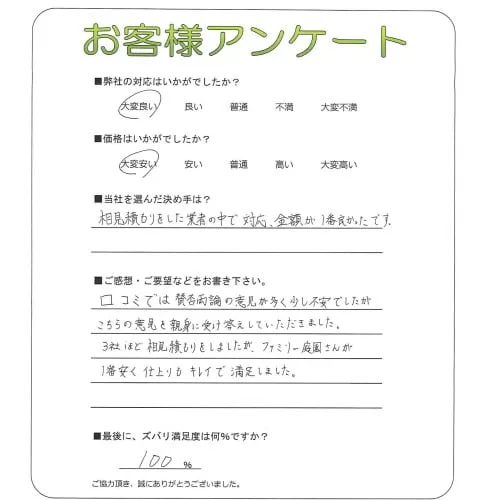 お客様アンケート
■弊社の対応はいかがでしたか？
大変良い 良い 普通 不満 大変不満
■価格はいかがでしたか？
大変安い 安い 普通 高い 大変高い
■当社を選んだ決め手は？
相見積もりをした業者の中で対応、金額が1番良かったです.
■ご感想・ご要望などをお書き下さい。
口コミでは賛否両論の意見が多く少し不安でしたが
こちらの意見を親身に受け答えしていただきました。
3社ほど相見積もりをしましたが、ファミリー庭園さんが
1番安く仕上りもキレイで満足しました。
■最後に、ズバリ満足度は何%ですか？
100 %
ご協力頂き、誠にありがとうございました。